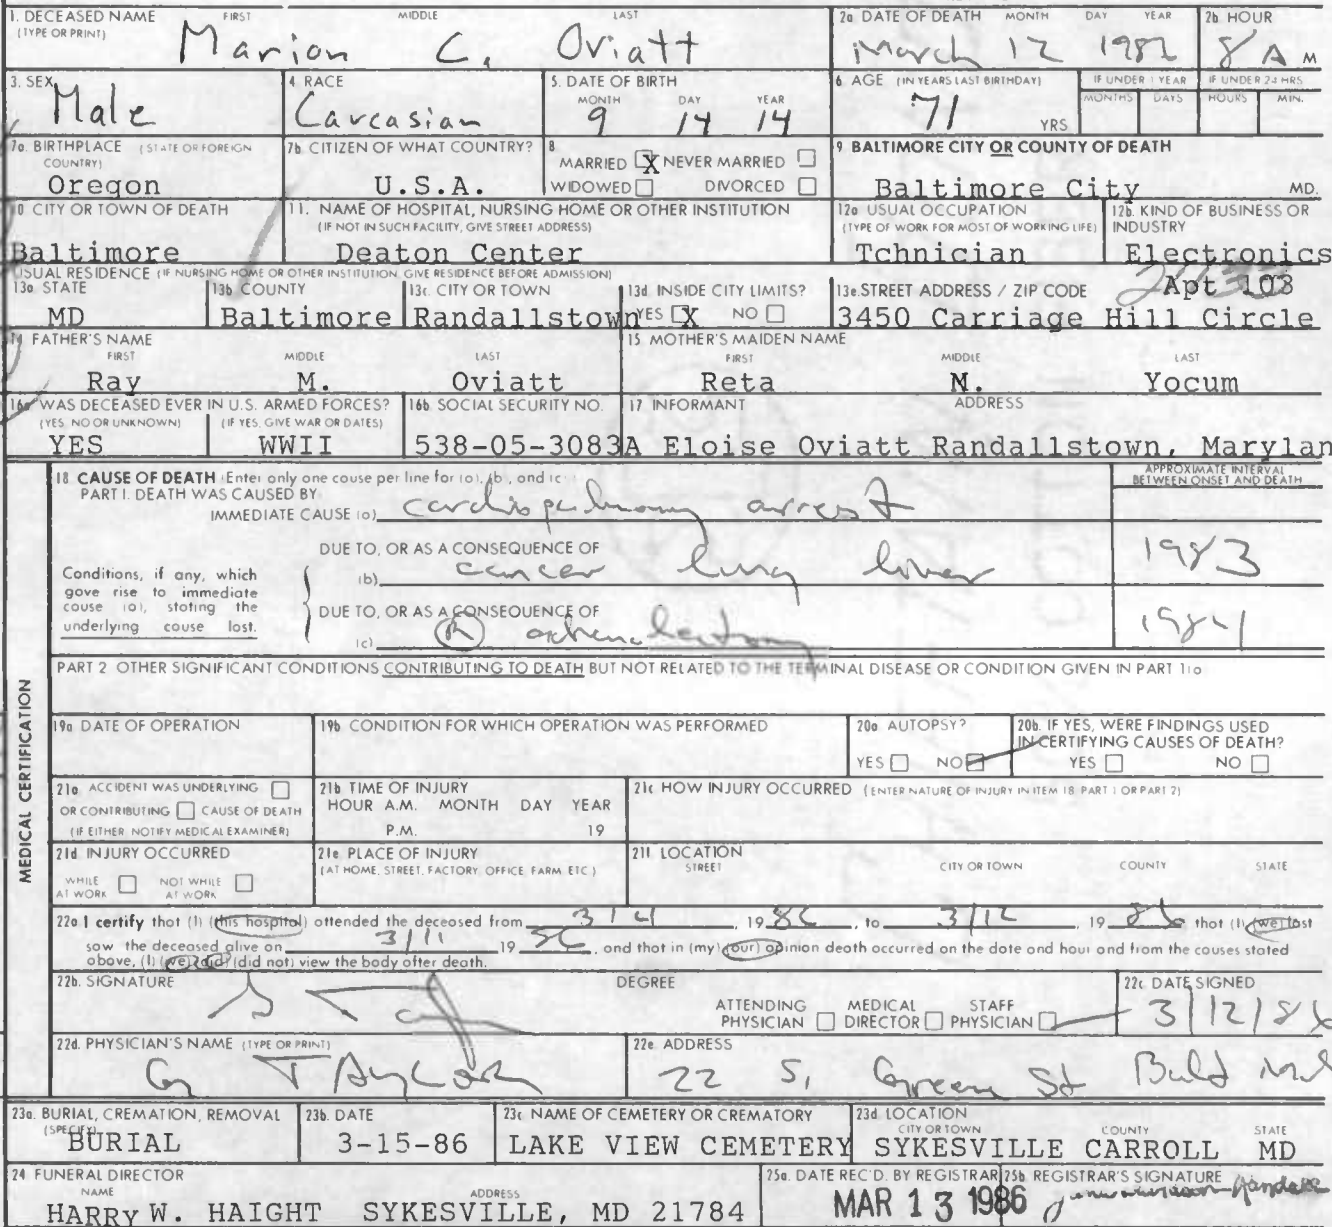 1. DECEASED NAME FIRST MIDDLE LAST
(TYPE OR PRINT)
Marion C. Oviatt
2a DATE OF DEATH MONTH DAY YEAR
March 12 1986
2b. HOUR
8 A M
3. SEX
Male
4. RACE
Carcasian
5. DATE OF BIRTH
MONTH DAY YEAR
9 14 14
6 AGE (IN YEARS LAST BIRTHDAY)
71 YRS
IF UNDER 1 YEAR
MONTHS DAYS
IF UNDER 24 HRS
HOURS MIN.
7a. BIRTHPLACE (STATE OR FOREIGN
COUNTRY)
Oregon
7b CITIZEN OF WHAT COUNTRY?
U.S.A.
8
MARRIED X NEVER MARRIED
WIDOWED DIVORCED
9 BALTIMORE CITY OR COUNTY OF DEATH
Baltimore City MD.
10 CITY OR TOWN OF DEATH
Baltimore
11. NAME OF HOSPITAL, NURSING HOME OR OTHER INSTITUTION
(IF NOT IN SUCH FACILITY, GIVE STREET ADDRESS)
Deaton Center
12a USUAL OCCUPATION
(TYPE OF WORK FOR MOST OF WORKING LIFE)
Tchnician
12b. KIND OF BUSINESS OR
INDUSTRY
Electronics
USUAL RESIDENCE (IF NURSING HOME OR OTHER INSTITUTION GIVE RESIDENCE BEFORE ADMISSION)
13a STATE
MD
13b COUNTY
Baltimore
13c. CITY OR TOWN
Randallstown
13d INSIDE CITY LIMITS?
YES X NO
13e. STREET ADDRESS / ZIP CODE
Apt 103
3450 Carriage Hill Circle
14 FATHER'S NAME
FIRST MIDDLE LAST
Ray M. Oviatt
15 MOTHER'S MAIDEN NAME
FIRST MIDDLE LAST
Reta M. Yocum
16a WAS DECEASED EVER IN U.S. ARMED FORCES?
(YES, NO OR UNKNOWN) (IF YES, GIVE WAR OR DATES)
YES WWII
16b SOCIAL SECURITY NO.
538-05-3083A
17 INFORMANT ADDRESS
Eloise Oviatt Randallstown, Marylan
MEDICAL CERTIFICATION
18 CAUSE OF DEATH (Enter only one cause per line for (a), (b), and (c)
APPROXIMATE INTERVAL
BETWEEN ONSET AND DEATH
PART I. DEATH WAS CAUSED BY
IMMEDIATE CAUSE (a) cardiopulmonary arrest
DUE TO, OR AS A CONSEQUENCE OF
(b) cancer lung liver 1983
Conditions, if any, which
gave rise to immediate
cause (a), stating the
underlying cause last.
DUE TO, OR AS A CONSEQUENCE OF
(c) R adrenalectomy 1984
PART 2 OTHER SIGNIFICANT CONDITIONS CONTRIBUTING TO DEATH BUT NOT RELATED TO THE TERMINAL DISEASE OR CONDITION GIVEN IN PART 1(a
19a DATE OF OPERATION
19b CONDITION FOR WHICH OPERATION WAS PERFORMED
20a AUTOPSY?
YES NO
20b. IF YES, WERE FINDINGS USED
IN CERTIFYING CAUSES OF DEATH?
YES NO
21a ACCIDENT WAS UNDERLYING
OR CONTRIBUTING CAUSE OF DEATH
(IF EITHER NOTIFY MEDICAL EXAMINER)
21b TIME OF INJURY
HOUR A.M. MONTH DAY YEAR
P.M. 19
21c HOW INJURY OCCURRED (ENTER NATURE OF INJURY IN ITEM 18 PART 1 OR PART 2)
21d INJURY OCCURRED
WHILE AT WORK NOT WHILE AT WORK
21e PLACE OF INJURY
(AT HOME, STREET, FACTORY, OFFICE, FARM, ETC)
21f LOCATION
STREET CITY OR TOWN COUNTY STATE
22a I certify that (I) (this hospital) attended the deceased from 3/4, 19 86, to 3/12, 19 86 that (I) (we) last
saw the deceased alive on 3/11 19 86, and that in (my) (our) opinion death occurred on the date and hour and from the causes stated
above, (I) (we) (did) (did not) view the body after death.
22b. SIGNATURE
DEGREE
ATTENDING PHYSICIAN MEDICAL DIRECTOR STAFF PHYSICIAN
22c DATE SIGNED
3/12/86
22d. PHYSICIAN'S NAME (TYPE OR PRINT)
G TAYLOR
22e. ADDRESS
22 S. Green St Balt Md
23a. BURIAL, CREMATION, REMOVAL
(SPECIFY)
BURIAL
23b. DATE
3-15-86
23c NAME OF CEMETERY OR CREMATORY
LAKE VIEW CEMETERY
23d LOCATION
CITY OR TOWN COUNTY STATE
SYKESVILLE CARROLL MD
24 FUNERAL DIRECTOR
NAME ADDRESS
HARRY W. HAIGHT SYKESVILLE, MD 21784
25a. DATE REC'D. BY REGISTRAR
MAR 13 1986
25b. REGISTRAR'S SIGNATURE